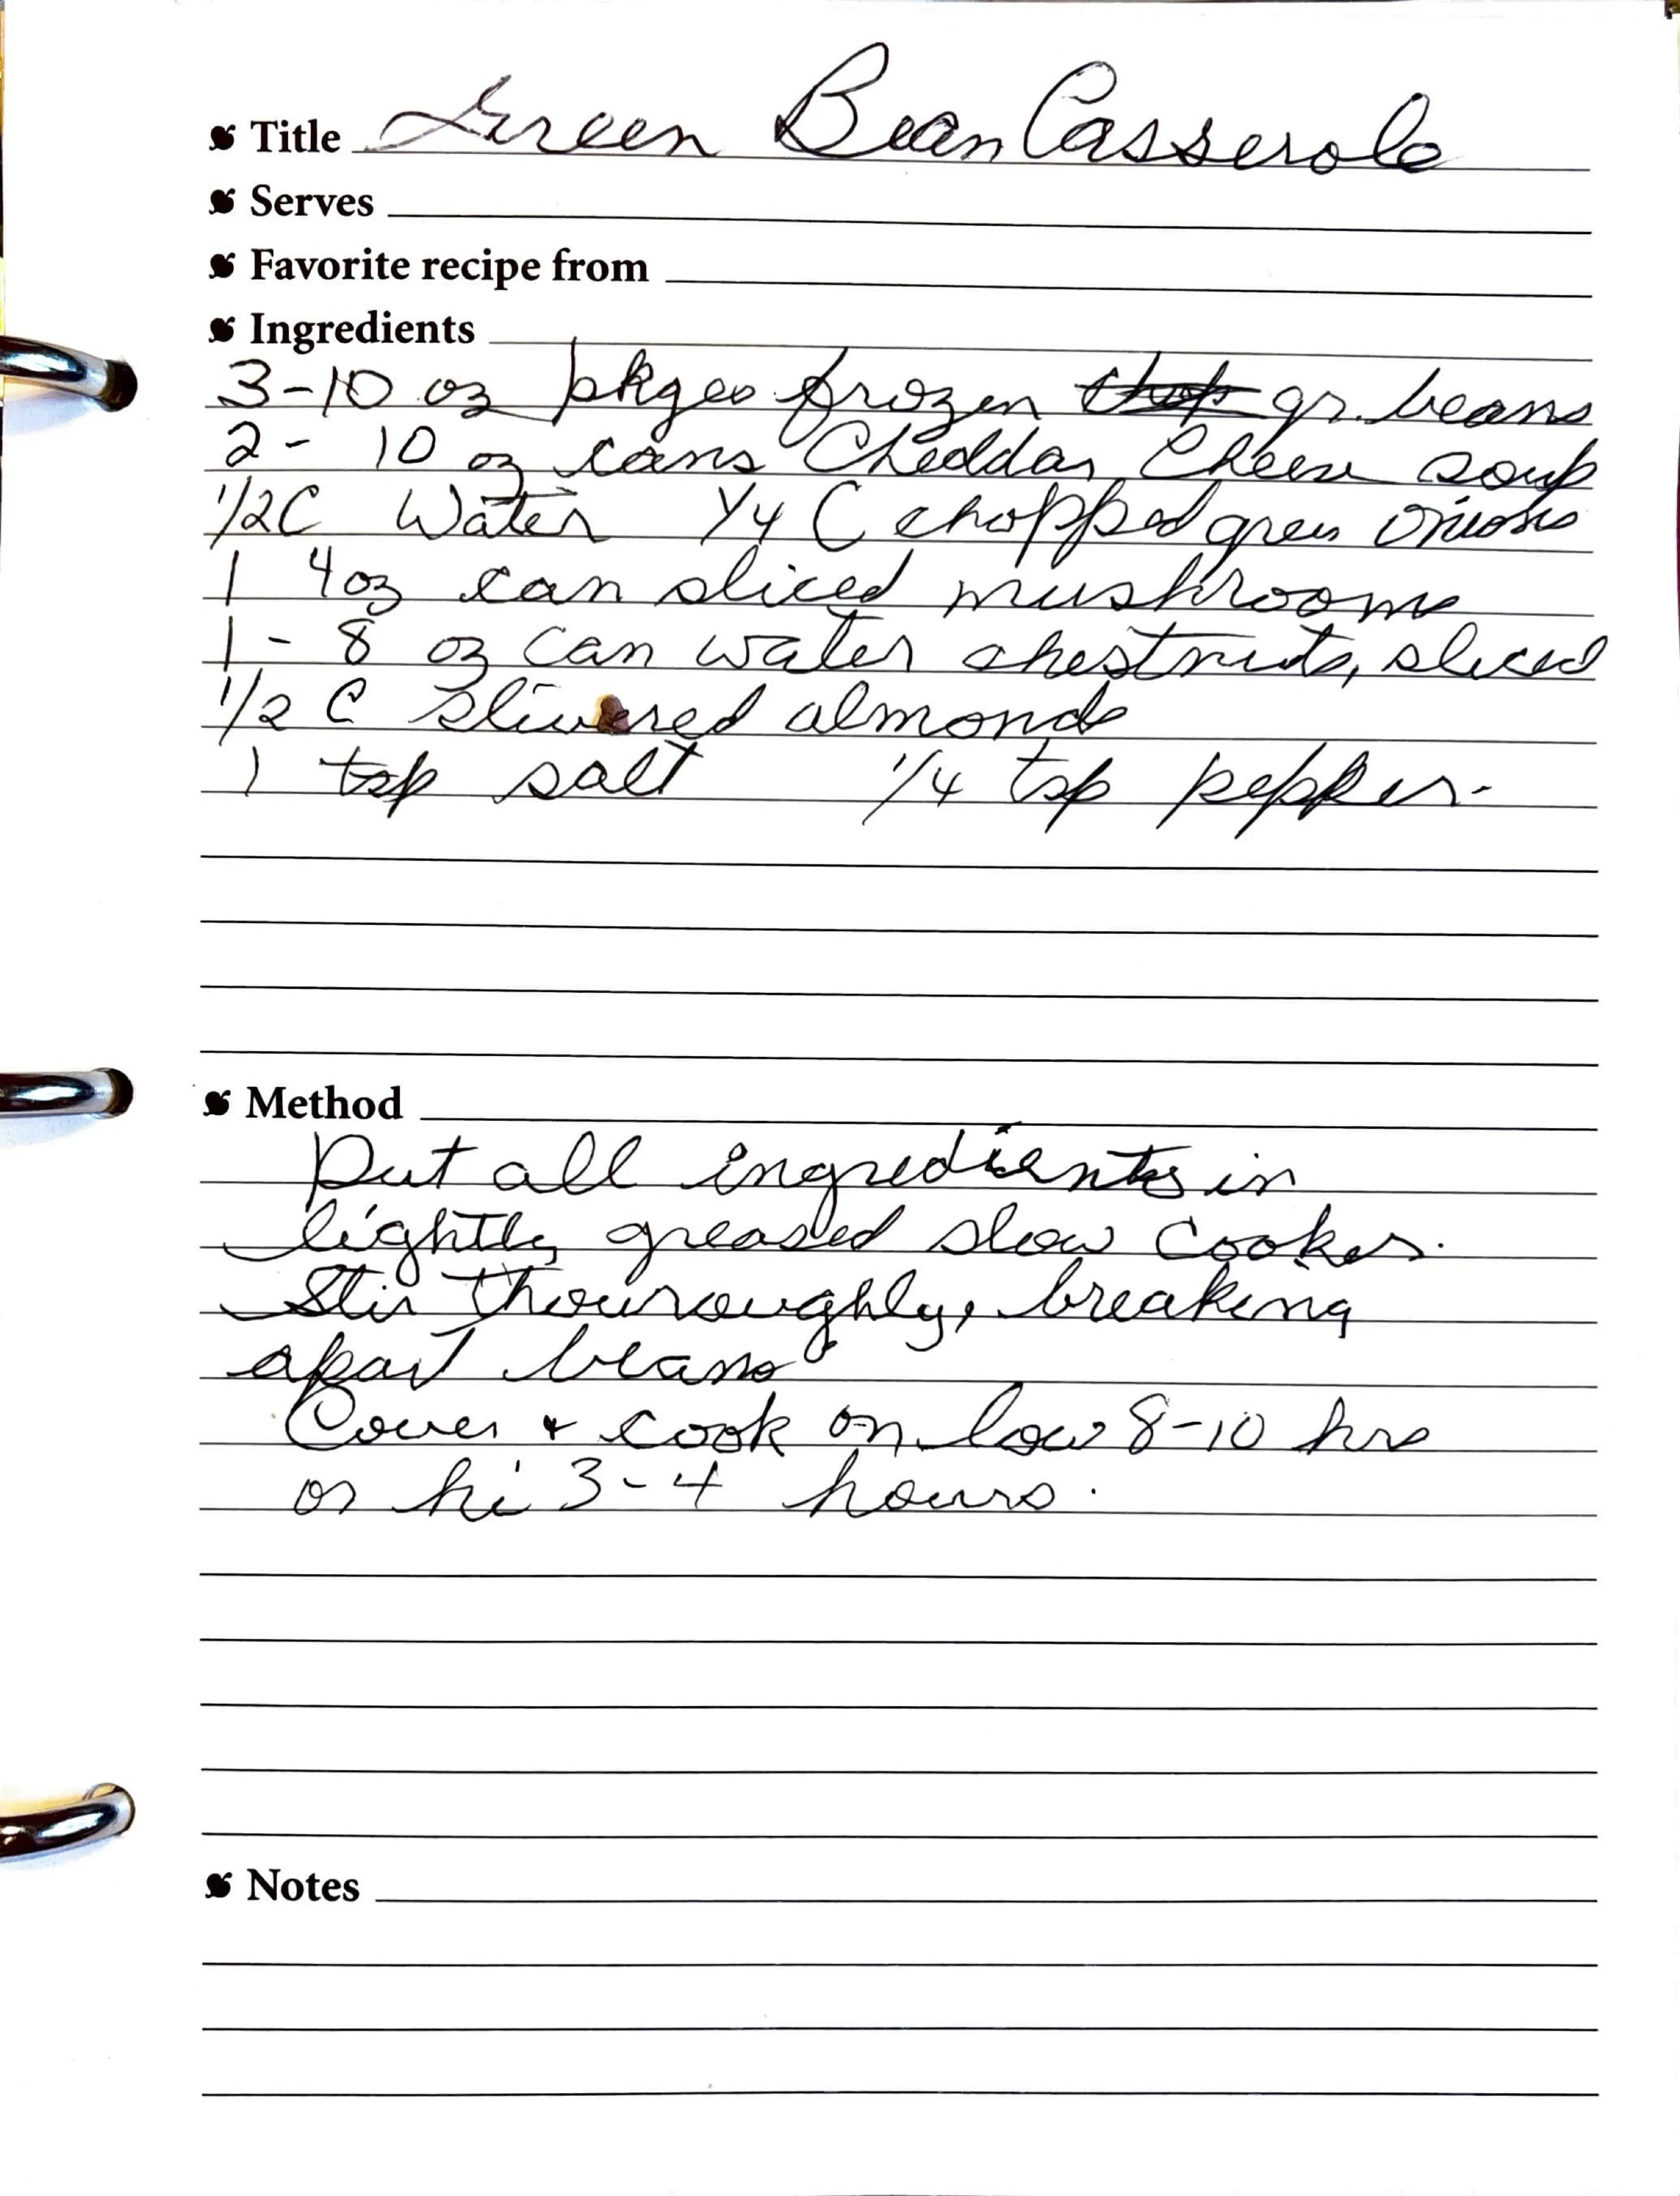 Title Green Bean Casserole
Serves
Favorite recipe from
Ingredients
3-10 oz pkges frozen gr. beans
2 - 10 oz cans Cheddar Cheese soup
1/2C Water 1/4 C chopped green onions
1 4oz can sliced mushrooms
1 - 8 oz can water chestnuts, sliced
1/2 C slivered almonds
1 tsp salt 1/4 tsp pepper.
Method
Put all ingredients in
lightly greased slow cooker.
Stir thouroughly, breaking
apart beans
Cover + cook on low 8-10 hrs
or hi 3-4 hours.
Notes